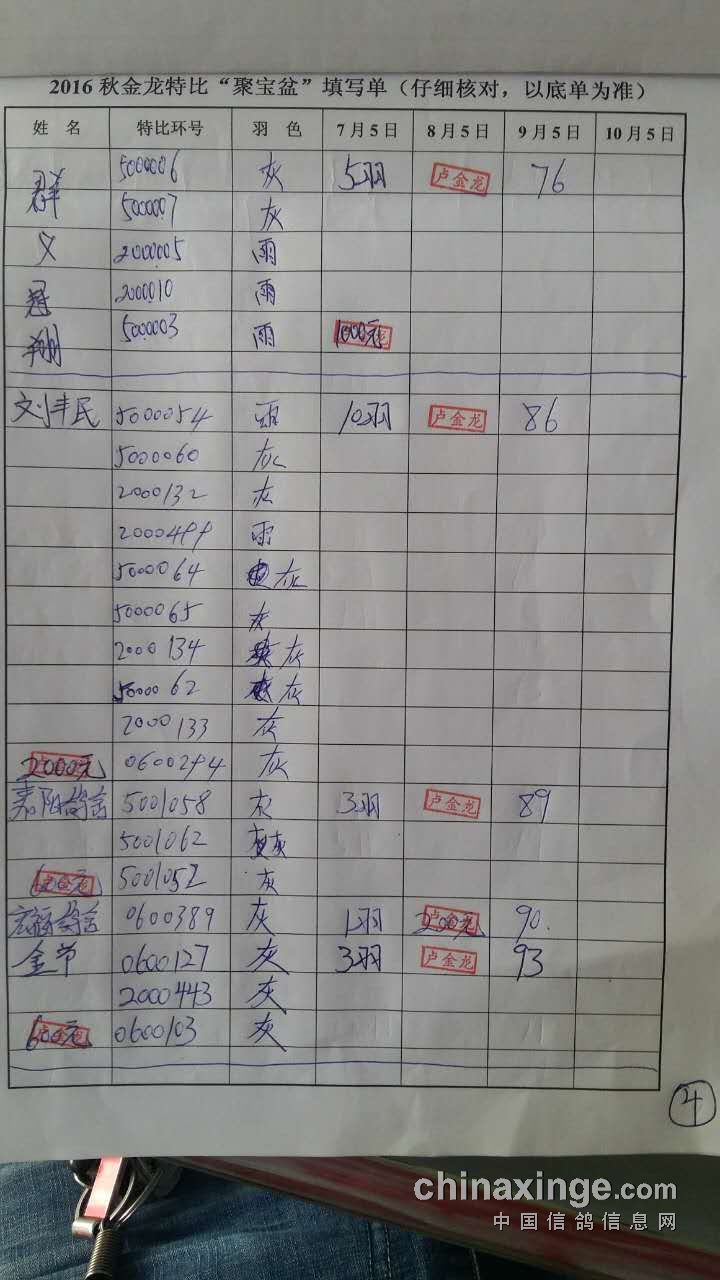 2016秋金龙特比“聚宝盆”填写单（仔细核对，以底单为准）
姓 名 特比环号 羽 色 7月5日 8月5日 9月5日 10月5日
群 5000006 灰 5羽 卢金龙 76
5000007 灰
义 2000005 雨
冠 2000010 雨
翔 5000003 雨 1000元
刘丰民 5000054 雨 10羽 卢金龙 86
5000060 灰
2000132 灰
2000499 雨
5000064 灰
5000065 灰
2000134 灰
5000062 灰
2000133 灰
2000元 0600294 灰
5001058 灰 3羽 卢金龙 89
5001062 灰
600元 5001052 灰
0600389 灰 1羽 200元 90.
金节 0600127 灰 3羽 卢金龙 93
2000443 灰
600元 0600103 灰
4
chinaxinge.com
中国信鸽信息网